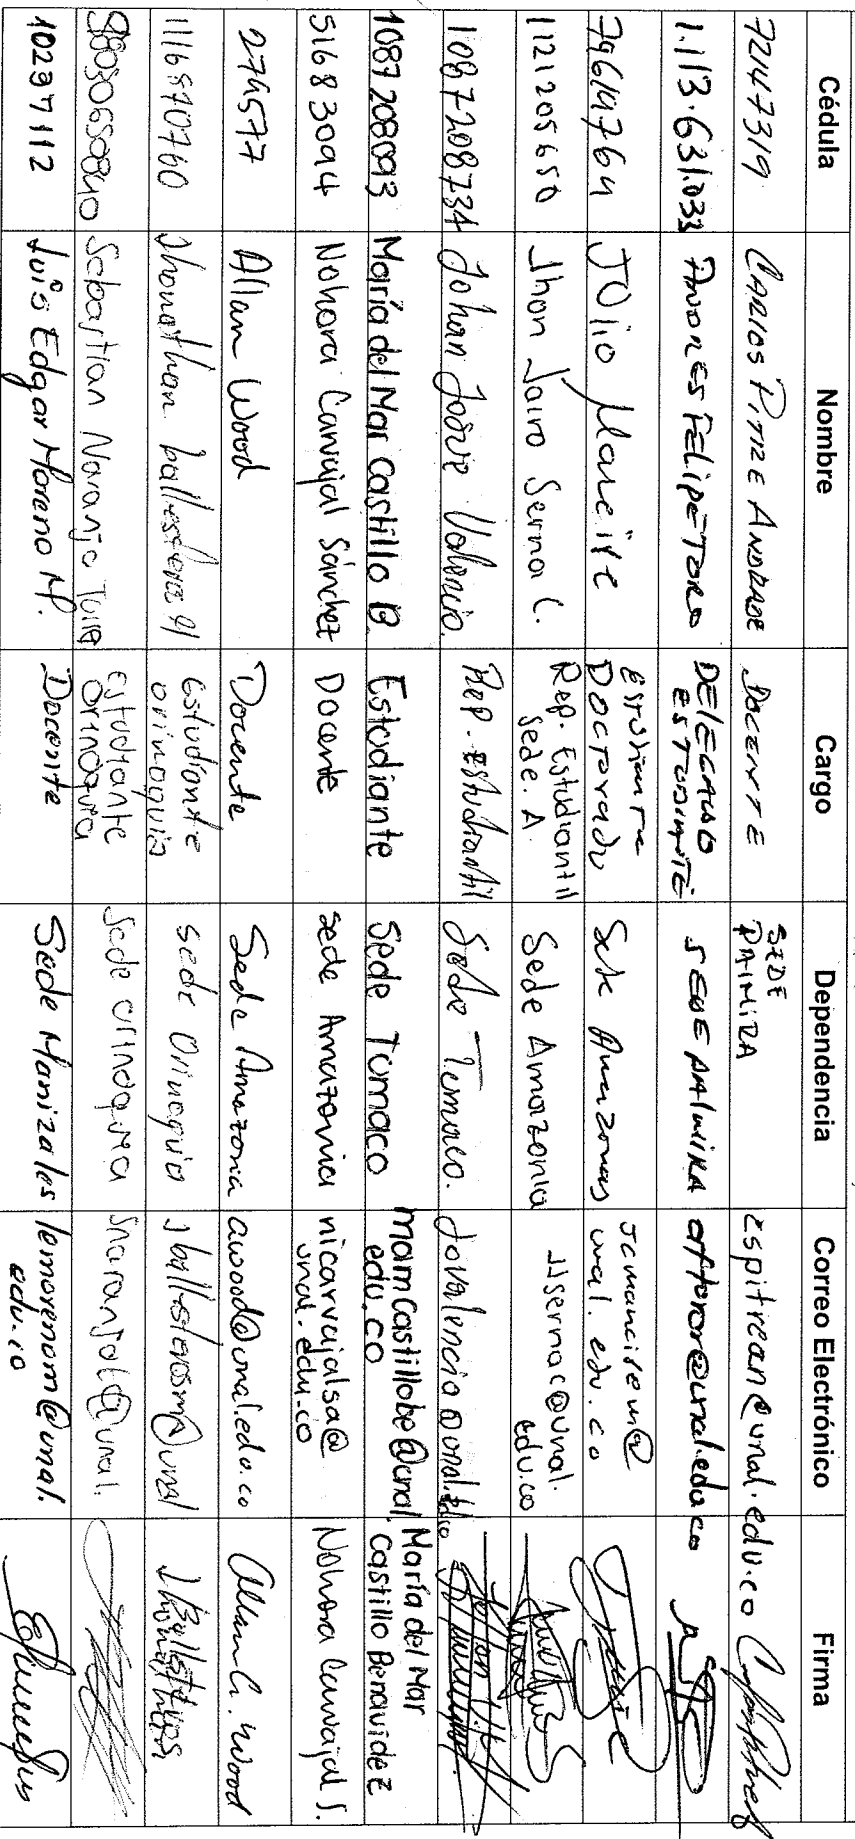 Cédula Nombre Cargo Dependencia Correo Electrónico Firma
72147319 CARLOS PITRE ANDRADE DOCENTE SEDE PALMIRA cspitrean@unal.edu.co
1.113.631.033 ANDRES FELIPE TORO DELEGADO ESTUDIANTE SEDE PALMIRA aftoror@unal.edu.co
79614764 JUlio Mancire Estudiante Doctorado Sede Amazonas jcmancirem@unal.edu.co
1121205650 Jhon Jairo Serna C. Rep. Estudiantil Sede. A. Sede Amazonia JJsernac@unal.edu.co
1087208734 Johan Valencia Rep. Estudiantil Sede Tumaco. Jovalencia@unal.edu.co
1089208093 María del Mar Castillo B Estudiante Sede Tumaco mamCastillobe@unal.edu.co María del Mar Castillo Benavidez
51683094 Nohora Carvajal Sánchez Docente sede Amazonia nicarvajalsa@unal.edu.co Nohora Carvajal S.
274577 Allan Wood Docente Sede Amazonia awood@unal.edu.co Allan G. Wood
1116870760 Jhonathan ballesteros M Estudiante orinoquia sede Orinoquia jballesterosm@unal J Ballesteros
98030650840 Sebastian Naranjo estudiante orinoquia sede orinoquia snaranjot@unal.
10237112 Luis Edgar Moreno M. Docente Sede Manizales lemorenom@unal.edu.co